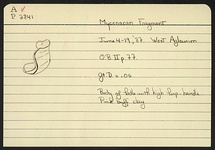 A
P 2841
Mycenaean Fragment
June 4-19, '37. West Aglaurion
O.B. II p. 77
gr. D. = .05
Body of bowl with high loop handle
Pink buff clay